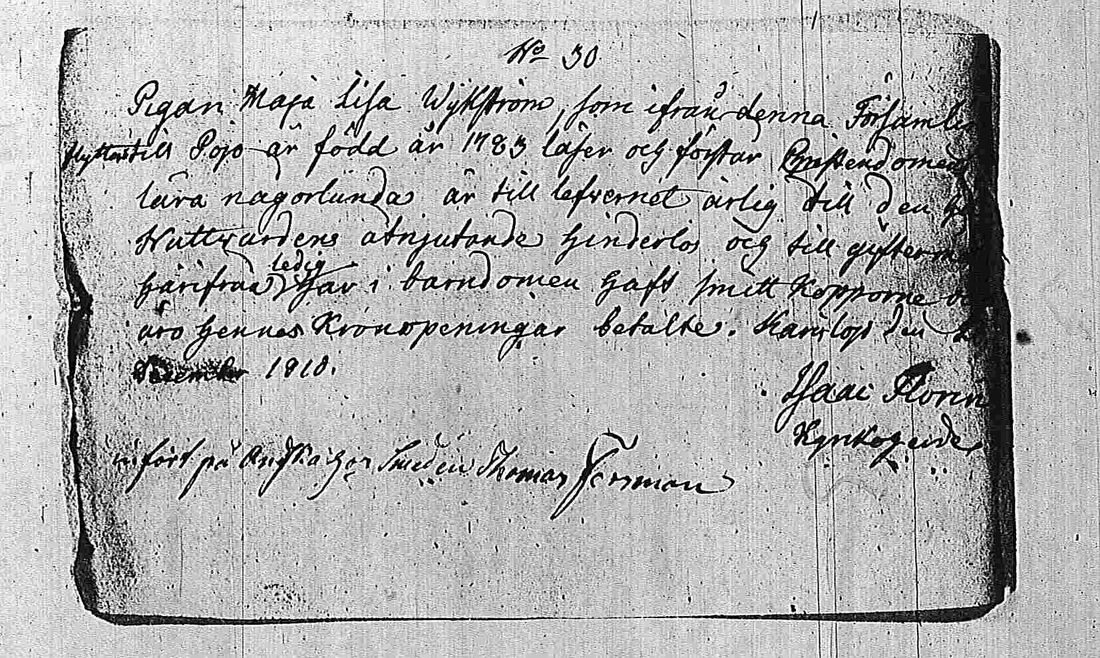 No 30
Pigan Maja Lisa Wykström, som ifrån denna Församl
flyttar till Pojo är född år 1783 läser och förstår Christendomen
lära någorlunda är till lefvernet ärlig till den
Nattwardens åtnjutande hinderlös och till gifterm
härifrån ledig har i barndomen haft smitt Kopporne
äro hennes Kronopeningar betalte. Karislojo den
December 1810.
Isaac Florin
Kyrkoherde
infört på Smeden Thomas Forsman